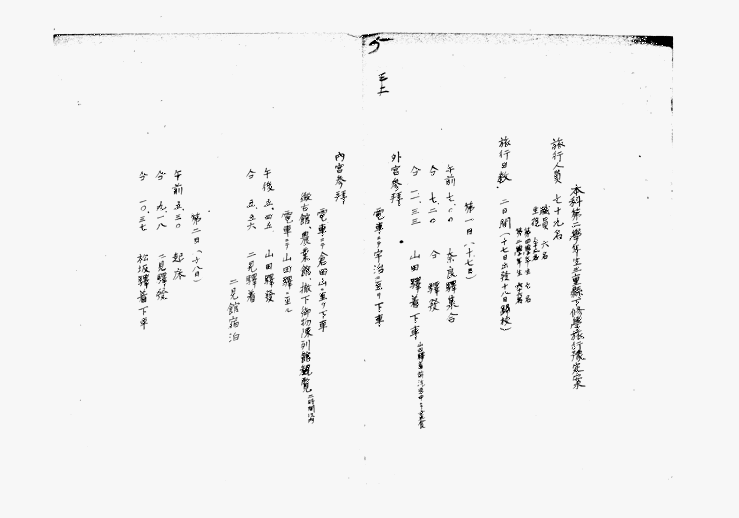 本科第二學年生三重縣下修學旅行豫定案
旅行人員 七十九名
職員 六名
生徒
第四學年生 七名
第二學年生
旅行日數 二日間(十七日出發十八日歸校)
第一日(十七日)
午前 七、〇〇 奈良驛集合
仝 七、二〇 仝驛發
仝 一一、三三 山田驛着下車
外宮參拜
電車ニテ宇治ニ至リ下車
內宮參拜
電車ニテ倉田山ニ至リ下車
徵古館、農業館、撤下御物陳列館觀覽 二時間以內
電車ニテ山田驛ニ至ル
午後 五、四五 山田驛發
仝 五、五六 二見驛着
二見館宿泊
第二日(十八日)
午前 五、三〇 起床
仝 九、一八 二見驛發
仝 一〇、三七 松坂驛着下車